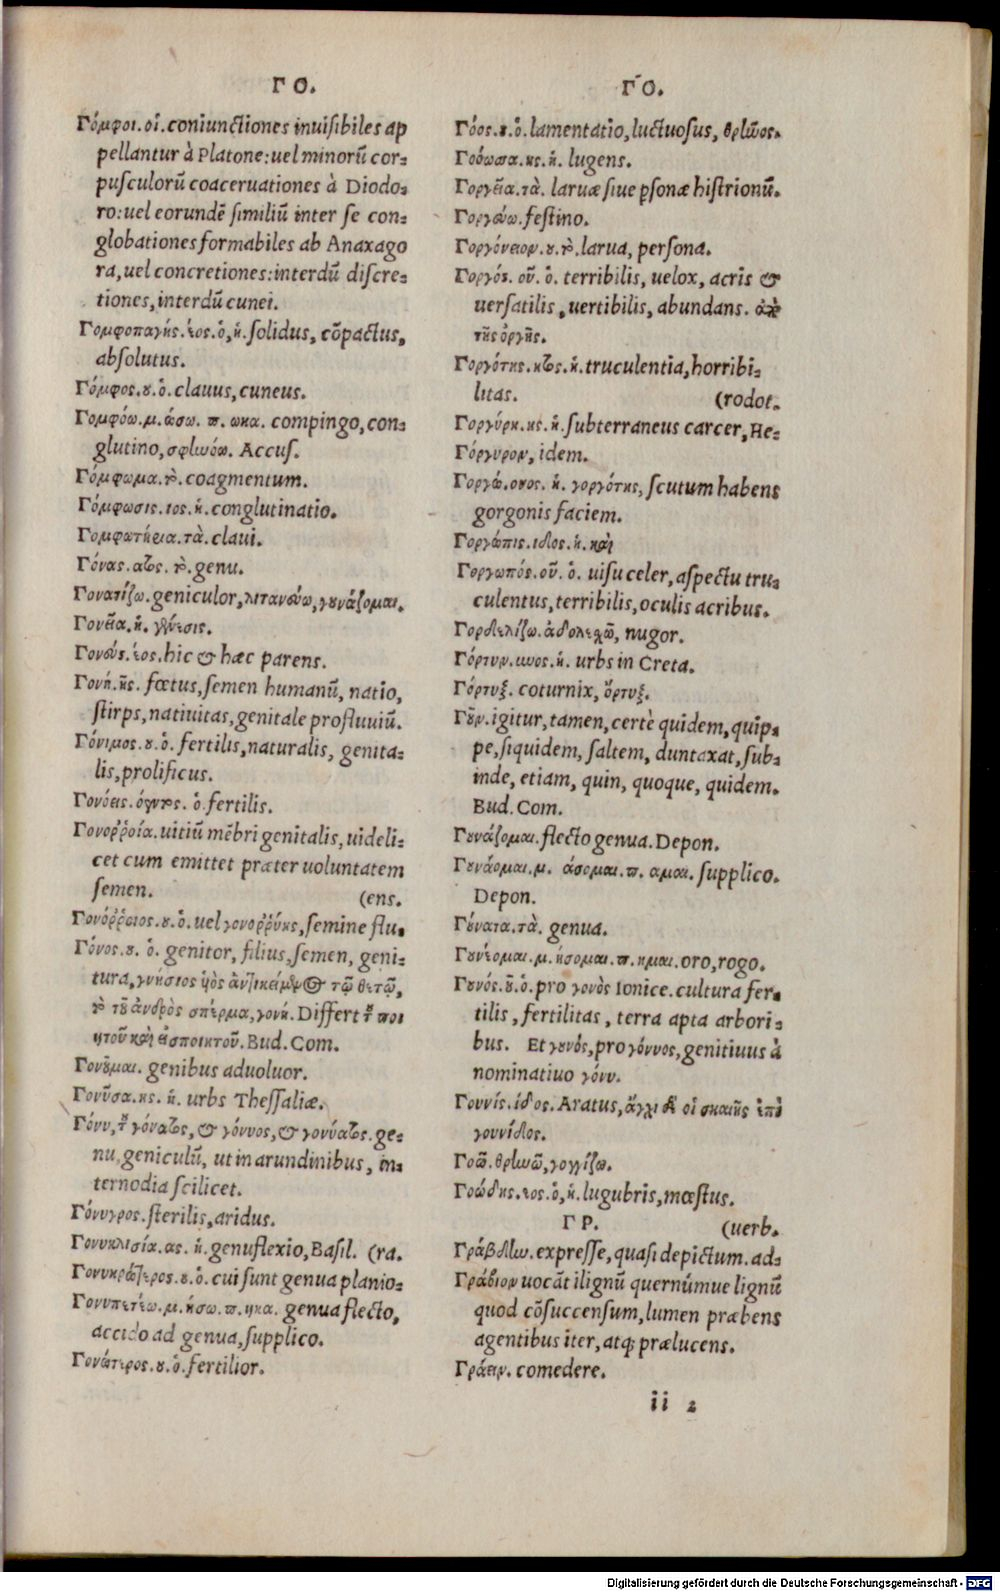 ΓΟ.
Γόμφοι.οἱ.coniunctiones inuisibiles ap
pellantur à Platone:uel minorū cor-
pusculorū coaceruationes à Diodo-
ro:uel eorundē similiū inter se con-
globationes formabiles ab Anaxago
ra,uel concretiones:interdū discre-
tiones,interdū cunei.
Γομφοπαγής.έος.ὁ,ἡ.solidus, cōpactus,
absolutus.
Γόμφος.ου.ὁ.clauus,cuneus.
Γομφόω.μ.ώσω.π.ωκα. compingo,con-
glutino,σφηνόω. Accus.
Γόμφωμα.τὸ.coagmentum.
Γόμφωσις.ιος.ἡ.conglutinatio.
Γομφωτήρια.τὰ.claui.
Γόνας.ατος.τὸ.genu.
Γονατίζω.geniculor,λιτανεύω,γουνάζομαι.
Γονεῖα.ἡ.γένεσις.
Γονεύς.έος.hic & hæc parens.
Γονή.ῆς.fœtus,semen humanū, natio,
stirps,natiuitas,genitale profluuiū.
Γόνιμος.ου.ὁ.fertilis,naturalis, genita-
lis,prolificus.
Γονόεις.όεντος.ὁ.fertilis.
Γονορῥοία.uitiū mēbri genitalis,uideli-
cet cum emittet præter uoluntatem
semen. (ens.
Γονόρῥοιος.ου.ὁ.uel γονορῥύης,semine flu-
Γόνος.ου.ὁ. genitor, filius,semen, geni-
tura,γνήσιος υἱὸς ἀντικείμενος τῷ θετῷ,
τὸ τοῦ ἀνδρὸς σπέρμα,γονή.Differt τοῦ ποι
ητοῦ καὶ εἰσποιητοῦ.Bud.Com.
Γονοῦμαι.genibus aduoluor.
Γονοῦσα.ης.ἡ. urbs Thessaliæ.
Γόνυ,τοῦ γόνατος,& γόννος,& γονύατος.ge-
nu,geniculū, ut in arundinibus, in-
ternodia scilicet.
Γόνυγρος.sterilis,aridus.
Γονυκλισία.ας.ἡ.genuflexio,Basil. (ra.
Γονυκράτερος.ου.ὁ.cui sunt genua planio-
Γονυπετέω.μ.ήσω.π.ηκα. genua flecto,
accido ad genua,supplico.
Γονώτερος.ου.ὁ.fertilior.
ΓΟ.
Γόος.ου.ὁ.lamentatio,luctuosus, θρῆνος.
Γοόωσα.ης.ἡ. lugens.
Γοργεῖα.τὰ. laruæ siue psonæ histrionū.
Γοργεύω.festino.
Γοργόνειον.ου.τὸ.larua, persona.
Γοργός. οῦ. ὁ. terribilis, uelox, acris &
uersatilis,uertibilis, abundans. ἀπὸ
τῆς ὀργῆς.
Γοργότης.ητος.ἡ.truculentia,horribi-
litas. (rodot.
Γοργύρη.ης.ἡ.subterraneus carcer,He-
Γόργυρον,idem.
Γοργώ.ονος. ἡ. γοργότης,scutum habens
gorgonis faciem.
Γοργώπις.ιδος.ἡ.καὶ
Γοργωπός.οῦ.ὁ. uisu celer,aspectu tru-
culentus,terribilis,oculis acribus.
Γορδιελίζω.ἀδολεχῶ, nugor.
Γόρτυν.υνος.ἡ. urbs in Creta.
Γόρτυξ. coturnix, ὄρτυξ.
Γοῦν.igitur,tamen,certè quidem,quip-
pe,siquidem, saltem, duntaxat,sub-
inde, etiam, quin, quoque, quidem.
Bud.Com.
Γουνάζομαι.flecto genua.Depon.
Γουνάομαι.μ. άσομαι.π. αμαι. supplico.
Depon.
Γούνατα.τὰ. genua.
Γουνέομαι.μ.ήσομαι.π.ημαι.oro,rogo.
Γουνός.οῦ.ὁ.pro γονὸς Ionice.cultura fer-
tilis,fertilitas, terra apta arbori-
bus. Et γουνός,pro γόννος,genitiuus à
nominatiuo γόνυ.
Γουνίς.ίδος.Aratus,ἄγχι δέ οἱ σκαιῆς ἐπὶ
γουνίδος.
Γοῶ.θρηνῶ,γογγίζω.
Γοώδης.εος.ὁ,ἡ.lugubris,mœstus.
ΓΡ. (uerb.
Γράβδην.expresse,quasi depictum.ad-
Γράβιον uocāt ilignū quernúmue lignū
quod cōsuccensum,lumen præbens
agentibus iter,atq; prælucens.
Γράειν.comedere.
ii 2
Digitalisierung gefördert durch die Deutsche Forschungsgemeinschaft - DFG